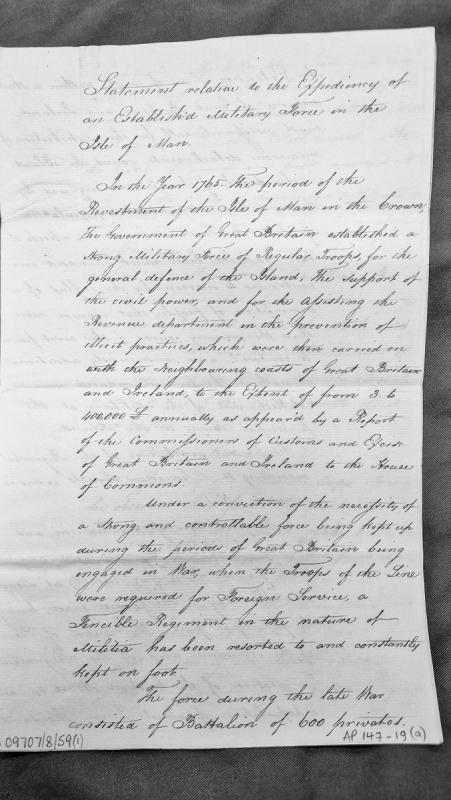 Statement relative to the Expediency of
an Establish'd Military Force in the
Isle of Man.
In the Year 1765 The period of the
Revestment of the Isle of Man in the Crown,
The Government of Great Britain established a
strong Military Force of Regular Troops, for the
general defence of the Island, The support of
the civil power, and for the assisting the
Revenue department in the prevention of
illicit practices, which were then carried on
with the Neighbouring coasts of Great Britain
and Ireland, to the Extent of from 3 to
400,000 £ annually as appear'd by a Report
of the Commissioners of Customs and Excise
of Great Britain and Ireland to the House
of Commons.
Under a conviction of the necessity of
a strong and controllable force being kept up
during the periods of Great Britain being
engaged in War, when the Troops of the Line
were required for Foreign Service, a
Fencible Regiment in the nature of
Militia has been resorted to and constantly
kept on foot.
The force during the late War
consisted of Battalion of 600 privates.
09707/8/59(1)
AP 147-19(a)